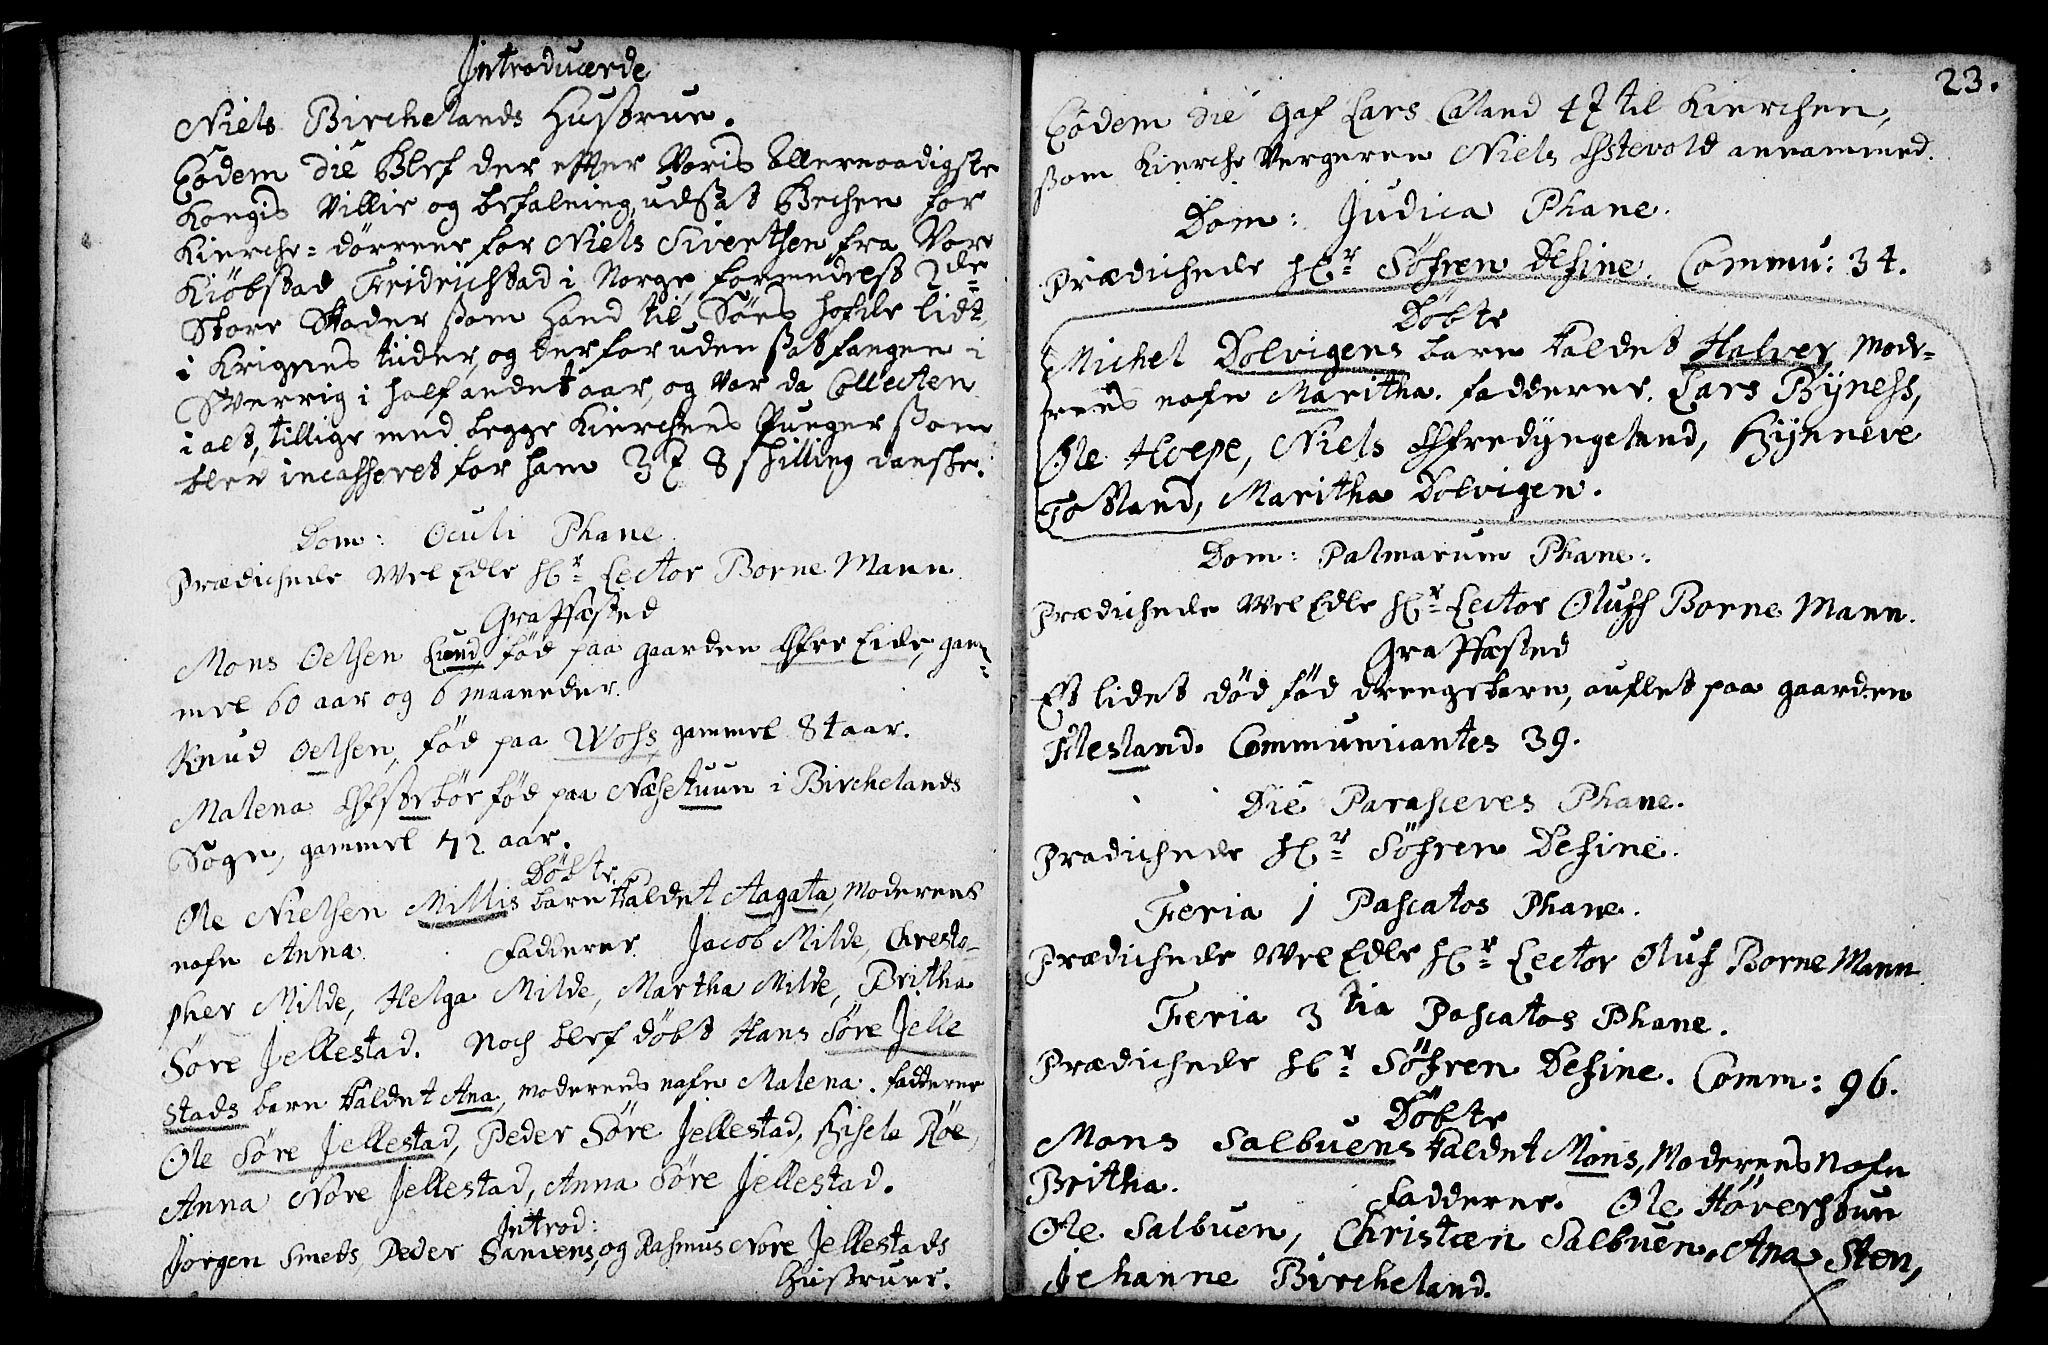 Introducerde
Niels Birchelands Hustrue.
Eodem die blef der effter Voris Allernaadigste
Kongis Villie og befalning, udsat Becken for
Kierche-dörrene for Niels Sivertsen fra Vor
Kiöbstad Fridrichstad i Norge formedelst 2de
Store Skader som hand til Söes hafde lidt
i Krigens tiider, og derforuden sat fangen i
Sverrig i half andet aar, og var da Collecten
i alt, tillige med begge Kierchens Punger som
blev incasseret for ham 3 8 skilling danske.
Dom: Oculi Phane.
Prædichede Wel Edle Hr Lector Borne Mann
Graffæsted
Mons Oelsen Lund föd paa gaarden Öfre Eide, gam-
mel 60 aar og 6 maaneder.
Knud Oelsen, föd paa Woss, gammel 84 aar.
Malena föd paa Næsetuun i Birchelands
Sogn, gammel 72 aar.
Döbte
Ole Nielsen Millis barn kaldet Aagata, Moderens
nafn Anna. Fadderer. Jacob Milde, Chresto-
pher Milde, Helga Milde, Martha Milde, Britha
Söre Jellestad. Noch blef döbt Hans Söre Jelle
stads barn kaldet Ana, moderens nafn Malena. fadderne
Ole Söre Jellestad, Peder Söre Jellestad, Gisela Röe,
Anna Nöre Jellestad, Anna Söre Jellestad.
Introd:
Jörgen Smeds, Peder Sandens, og Rasmus Nore Jellestads
Hustruer.
23.
Eodem die gaf Lars Caland 4 til Kierchen,
som Kierche Vergeren Niels Öстevold annammed.
Dom: Judica Phane.
Prædichede Hr Söfren Desine. Commu: 34.
Döbte
Michel Dolvigens barn kaldet Halver, Mode-
rens nafn Maritha. fadderer. Lars Bÿness,
Ole Hoepe, Niels Öfredÿngeland, Gÿnneve
Totland, Maritha Dolvigen.
Dom: Palmarum Phane.
Prædichede Wel Edle Hr Lector Oluff Borne Mann.
Graffæsted
Et lidet död föd drengebarn, auflet paa gaarden
Flesland. Communicantes 39.
Die Parasceves Phane.
Prædichede Hr Söfren Desine.
Feria 1 Pascatos Phane.
Prædichede Wel Edle Hr Lector Oluf Borne Mann
Feria 3 tia Pascatos Phane.
Prædichede Hr Söfren Desine. Comm: 96.
Döbte
Mons Salbuens kaldet Mons, Moderens Nafn
Britha. Fadderne. Ole
Ole Salbuen, Christen Salbuen, Ana Sten,
Jehanne Bircheland.